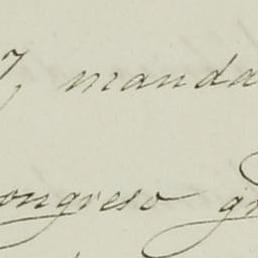 y manda
ongreso g